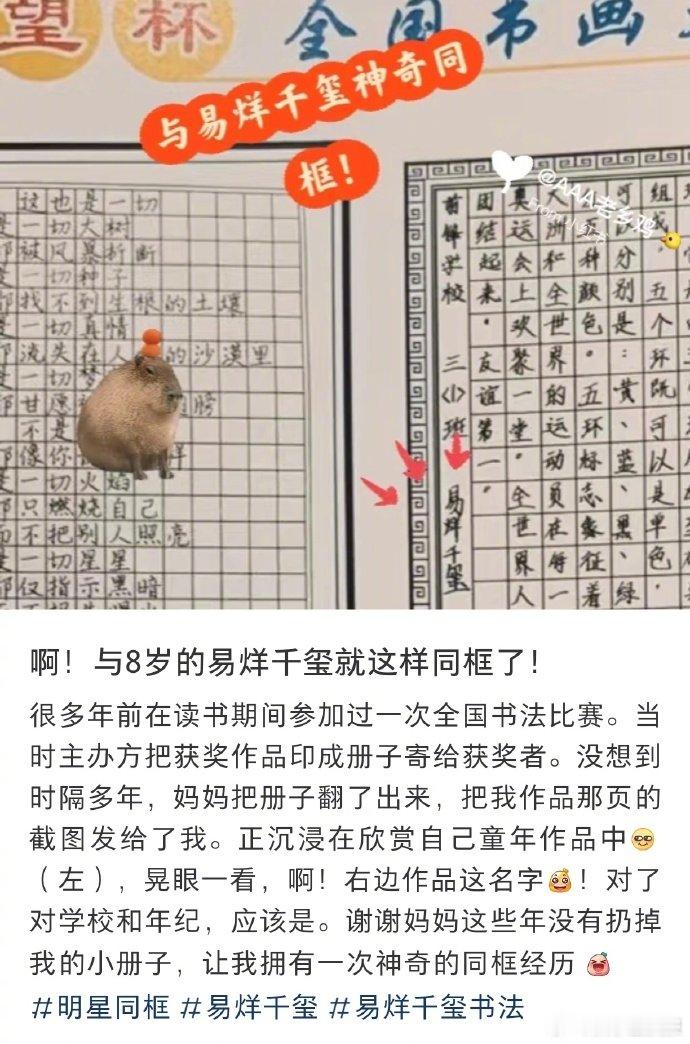 望杯 全国书画
与易烊千玺神奇同
框！
这也是一切
是一切大树
都被风暴折断
是一切种子
都找不到生根的土壤
是一切真情
都流失在人 的沙漠里
是一切梦
都甘愿 膀
不是
都像你 样
是一切火焰
都只燃烧自己
而不把别人照亮
是一切星星
都仅指示黑暗
组成，五个环既可以是单色，
可以分别是：黄、蓝、黑、绿
五种颜色。五环标志象征着
大洲和全世界的运动员在每一
奥运会上欢聚一堂。全世界人
团结起来，友谊第一。
前锋学校 三〈1〉班 易烊千玺
@AAA老乡鸡
From小红书
啊！与8岁的易烊千玺就这样同框了！
很多年前在读书期间参加过一次全国书法比赛。当
时主办方把获奖作品印成册子寄给获奖者。没想到
时隔多年，妈妈把册子翻了出来，把我作品那页的
截图发给了我。正沉浸在欣赏自己童年作品中
（左），晃眼一看，啊！右边作品这名字！对了
对学校和年纪，应该是。谢谢妈妈这些年没有扔掉
我的小册子，让我拥有一次神奇的同框经历
#明星同框 #易烊千玺 #易烊千玺书法